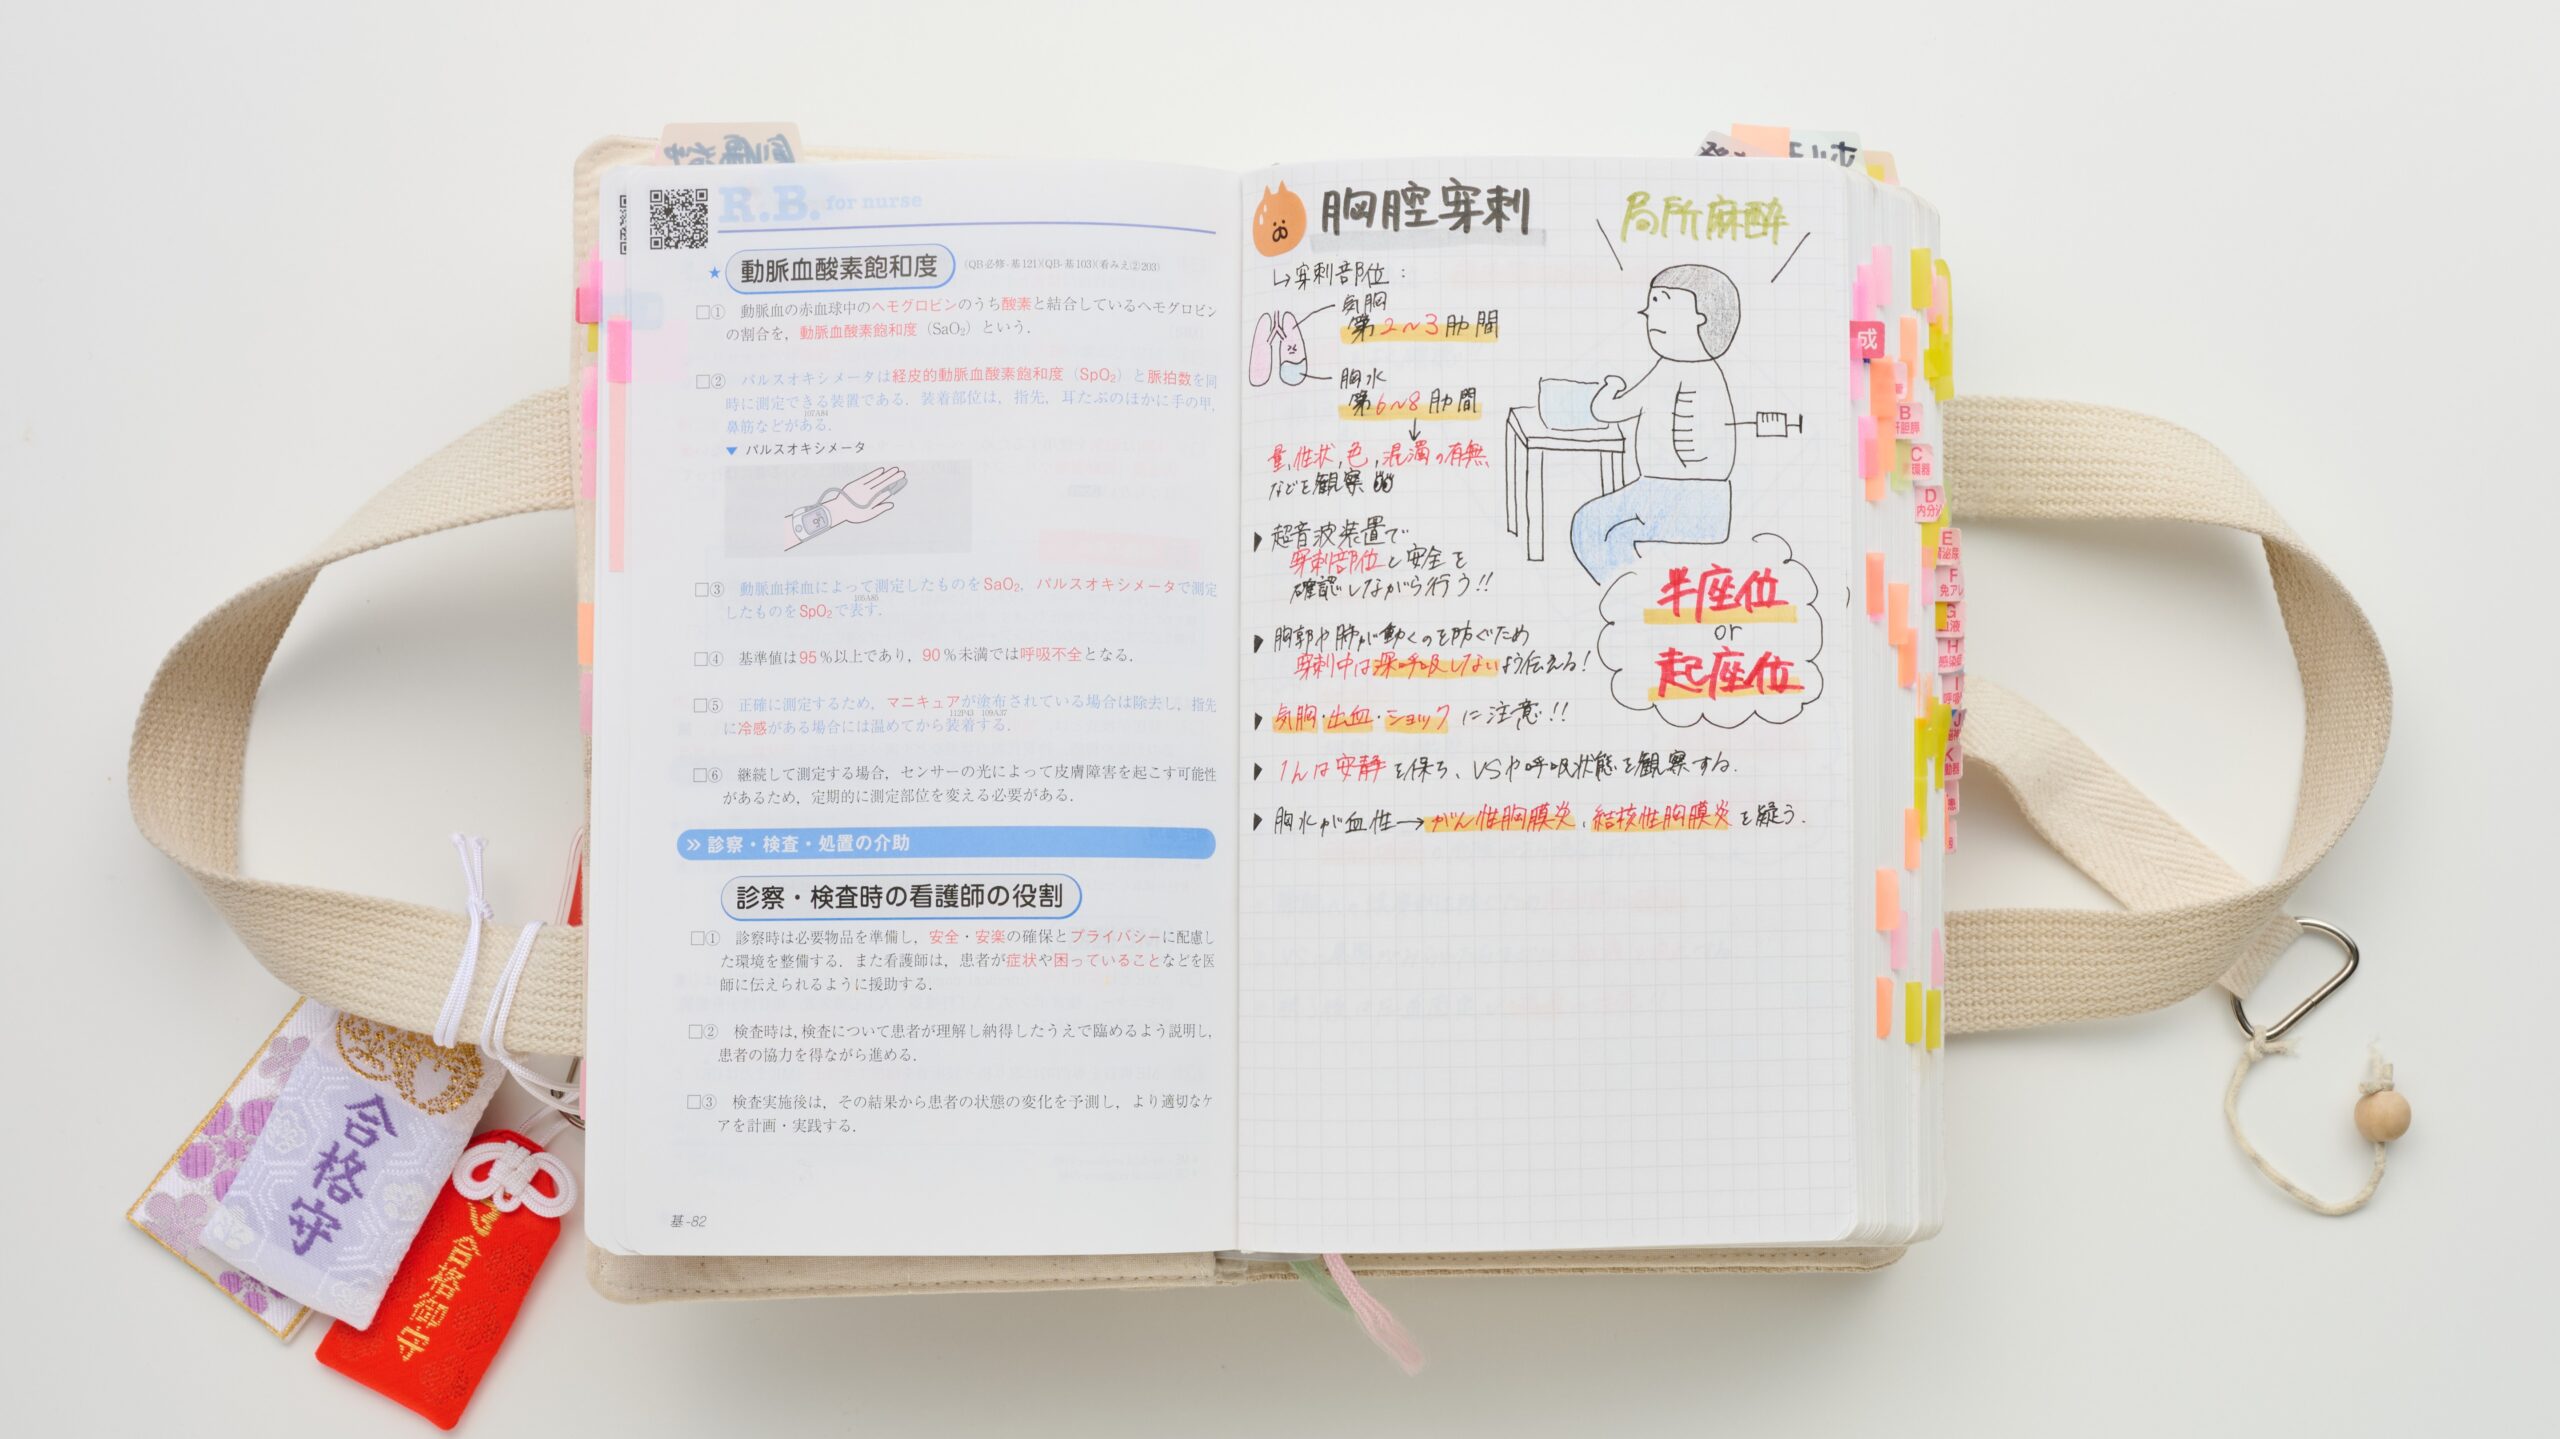 R.B. for nurse
動脈血酸素飽和度 (QB必修-基121)(QB-基103)(看みえ②203)
□① 動脈血の赤血球中のヘモグロビンのうち酸素と結合しているヘモグロビン
の割合を，動脈血酸素飽和度（SaO₂）という．
□② パルスオキシメータは経皮的動脈血酸素飽和度（SpO₂）と脈拍数を同
時に測定できる装置である．装着部位は，指先，耳たぶのほかに手の甲，
107A84
鼻筋などがある．
▼ パルスオキシメータ
□③ 動脈血採血によって測定したものをSaO₂，パルスオキシメータで測定
したものをSpO₂で表す．
105A85
□④ 基準値は95％以上であり，90％未満では呼吸不全となる．
□⑤ 正確に測定するため，マニキュアが塗布されている場合は除去し，指先
112P43 109A37
に冷感がある場合には温めてから装着する．
□⑥ 継続して測定する場合，センサーの光によって皮膚障害を起こす可能性
があるため，定期的に測定部位を変える必要がある．
» 診察・検査・処置の介助
診察・検査時の看護師の役割
□① 診察時は必要物品を準備し，安全・安楽の確保とプライバシーに配慮し
た環境を整備する．また看護師は，患者が症状や困っていることなどを医
師に伝えられるように援助する．
□② 検査時は，検査について患者が理解し納得したうえで臨めるよう説明し，
患者の協力を得ながら進める．
□③ 検査実施後は，その結果から患者の状態の変化を予測し，より適切なケ
アを計画・実践する．
基-82
胸腔穿刺
局所麻酔
↳穿刺部位：
気胸
第2〜3肋間
胸水
第6〜8肋間
↓
量,性状,色,混濁の有無
などを観察
▶ 超音波装置で
穿刺部位と安全を
確認しながら行う!!
▶ 胸郭や肺が動くのを防ぐため
穿刺中は深呼吸しないよう伝える!
▶ 気胸・出血・ショックに注意!!
▶ 1hは安静を保ち、VSや呼吸状態を観察する.
▶ 胸水が血性→がん性胸膜炎、結核性胸膜炎を疑う.
半座位
or
起座位
成
B
肝胆膵
C
循環器
D
内分泌
E
F
免アレ
G
血液
H
感染症
I
呼吸
J
K
合格守
合格御守